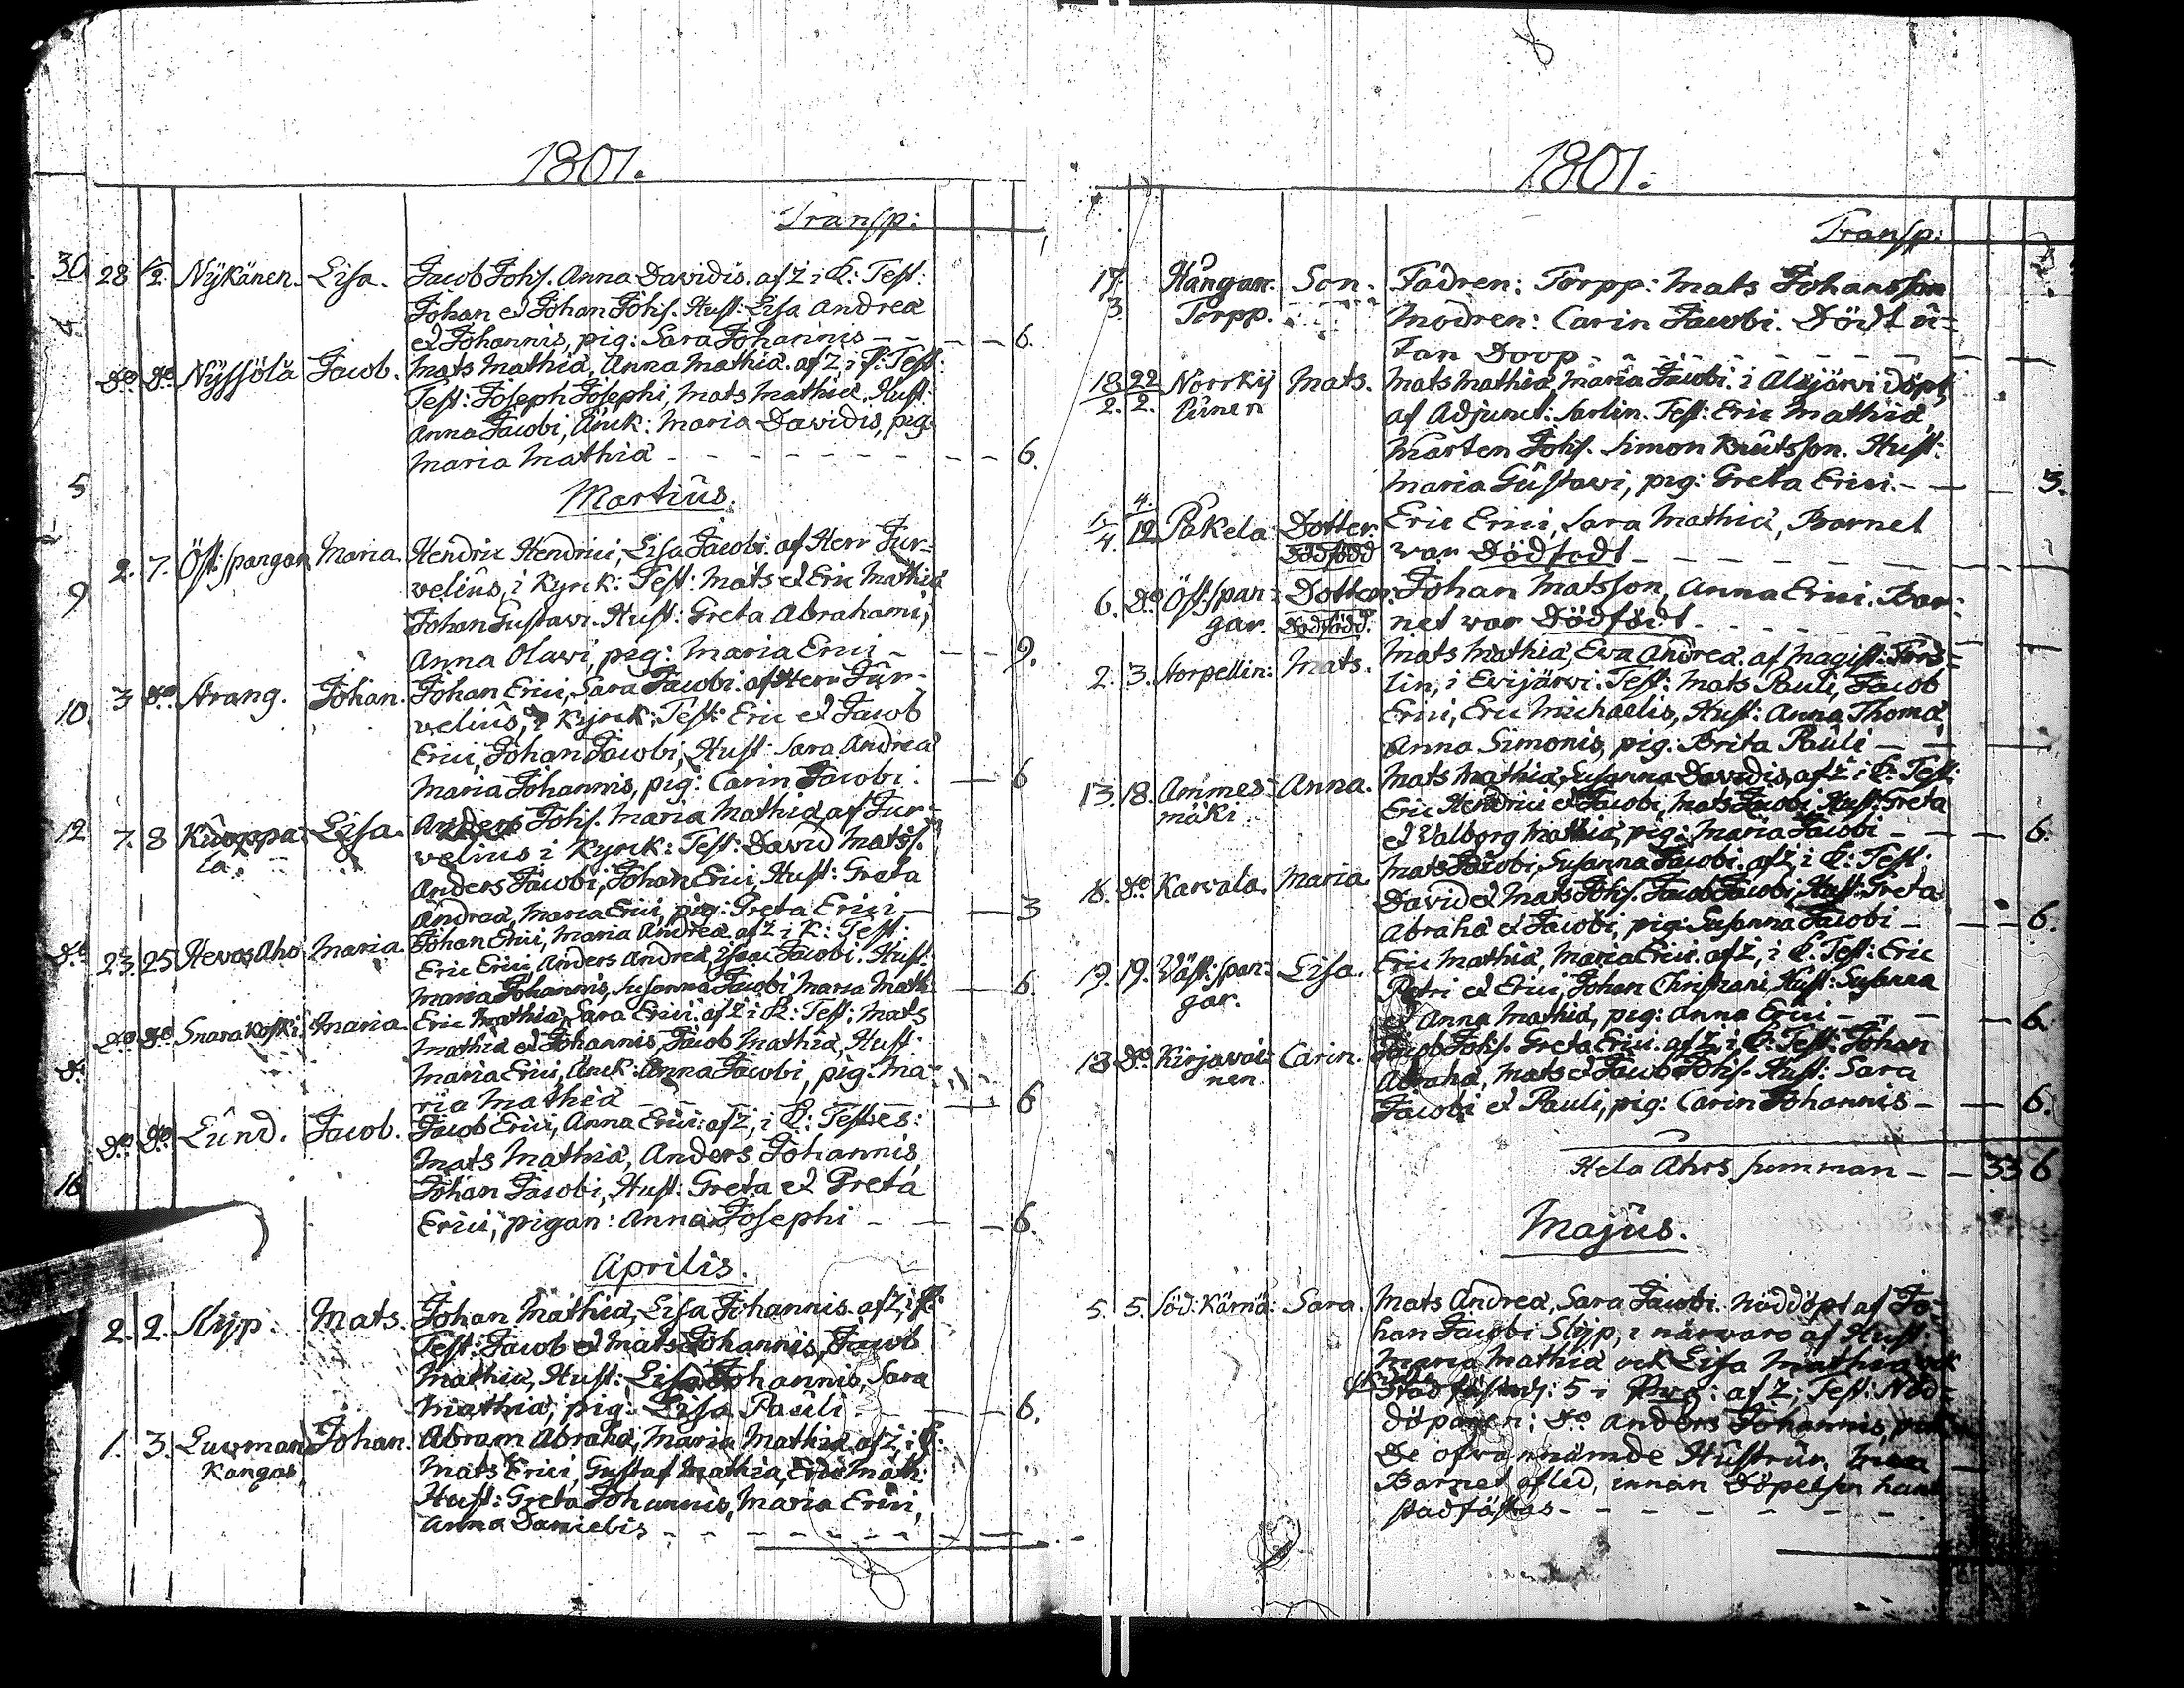 1801.
Transp:
30 28 1/2 Nÿkänen. Lisa. Jacob Johs. Anna Davidis. af Z i K: Test:
Johan et Johan Johs. Hust: Lisa Andreæ
et Johannis, pig: Sara Johannis - - - 6.
Do. Do. Nÿssölä Jacob. Mats Mathiæ, Anna Mathiæ. af Z i K: Test:
Test: Joseph Josephi, Mats Mathiæ, Hust:
Anna Jacobi, Änck: Maria Davidis, pig.
Maria Mathiæ - - - - - - - - - 6.
5
Martius.
2. 7. Öst: spangar Maria. Hendric Hendrici, Lisa Jacobi. af Herr Jur-
velius, i Kyrck: Test: Mats et Eric Mathiæ
9
Johan Gustavi. Hust: Greta Abrahami,
Anna Olavi, pig: Maria Erici - - - 9.
10. 3 Do. Strang. Johan. Johan Erici, Sara Jacobi. af Herr Jur-
velius, i Kyrck: Test: Eric et Jacob
Erici, Johan Jacobi, Hust: Sara Andreæ
Maria Johannis, pig: Carin Jacobi. - 6
12 7. 8 Kuoppa- Lisa. Anders Johs. Maria Mathiæ af Jur-
la. velius i Kyrck: Test: David Matss.
Anders Jacobi, Johan Erici, Hust: Greta
Andreæ, Maria Erici, pig: Greta Erici - - 3
Do 23. 25 Hevos Aho Maria. Johan Erici, Maria Andreæ. af Z i K: Test:
Eric Erici, Anders Andreæ, Isaac Jacobi. Hust:
Maria Johannis, Susanna Jacobi Maria Math - 6.
Do. Do Snarakoski. Maria. Eric Mathiæ, Sara Erici. af Z i K: Test: Mats
Mathiæ et Johannis, Jacob Mathiæ, Hust.
Maria Erici, Änck: Anna Jacobi, pig: Ma-
ria Mathiæ - - - - - - 6
Do. Do. Lund. Jacob. Jacob Erici, Anna Erici: af Z, i K: Testes:
Mats Mathiæ, Anders Johannis,
16 Johan Jacobi, Hust: Greta et Greta
Erici, pigan: Anna Josephi - - - 6.
Aprilis.
2. 2. Slijp. Mats. Johan Mathiæ, Lisa Johannis. af Z, i K:
Test: Jacob et Mats Johannis, Jacob
Mathiæ, Hust: Lisa Johannis, Sara
Mathiæ, pig: Lisa Pauli. - - - 6.
1. 3. Luoman Johan. Abram Abrahæ, Maria Mathiæ. af Z, i K:
Kangas Mats Erici, Gustaf Mathiæ, Math.
Hust: Greta Johannis, Maria Erici,
Anna Danielis - - - - - - -
1801.
Transp:
17. Hångan. Son. Fadren: Torpp: Mats Johansson
3. Torpp. Modren: Carin Jacobi. Död u-
tan Doop - - - - - - - -
18 22 Norrkÿ Mats. Mats Mathiæ Maria Jacobi. i Alajärvi döpt
2. 2. lünen af Adjunct: Sarlin. Test: Eric Mathiæ,
Mårten Johs. Simon Knutsson. Hust:
Maria Gustavi, pig: Greta Erici. - - - 3.
4.
5/4. 12 Päkela Dotter. Eric Erici, Sara Mathiæ, Barnet
Dödfödd war Dödfödt - - - - - -
6. Do Öst: span- Dotter. Johan Matsson, Anna Erici. Bar-
gar. Dödfödd. net war Dödfödt - - - - -
2. 3. Storpellin: Mats. Mats Mathiæ, Eva Andreæ. af Magist: Fors-
lin, i Evijärvi. Test: Mats Pauli, Jacob
Erici, Eric Michaelis, Hust: Anna Thomæ,
Anna Simonis, pig: Brita Pauli - - -
13. 18. Ammes- Anna. Mats Mathiæ, Susanna Davidis, af Z i K: Test:
mäki Eric Hendrici et Jacobi, Mats Jacobi Hust: Greta
et Valborg Mathiæ, pig: Maria Jacobi - - - 6.
18. Do Karvala. Maria. Mats Jacobi, Susanna Jacobi. af Z i K: Test:
David et Mats Johs. Jacob Jacobi, Hust: Greta
Abrahæ et Jacobi, pig: Susanna Jacobi - - - 6.
19. 19. Wäst: span- Lisa. Eric Mathiæ, Maria Erici. af Z, i K: Test: Eric
gar. Petri et Erici, Johan Christiani, Hust: Susanna
et Anna Mathiæ, pig: Anna Erici - - - 6.
18 Do. Kirjavai- Carin. Jacob Johs. Greta Erici. af Z, i K: Test: Johan
nen Abrahæ, Mats et Jacob Johs. Hust: Sara
Jacobi et Pauli, pig: Carin Johannis - - 6.
Hela Åhrs summan - - 33 6
Majus.
5. 5. Söd: Kärnä: Sara. Mats Andreæ, Sara Jacobi. Nöddöpt af Jo-
han Jacobi Slijp, i närvaro af Hust
Maria Mathiæ ock Lisa Mathiæ ock
5 i : af Z; Test: Nöd-
döparen; Do Anders Johannis,
De ofvannämde Hustrur,
Barnet afled, innan Döpelsen hant
stadfästas - - - - - -